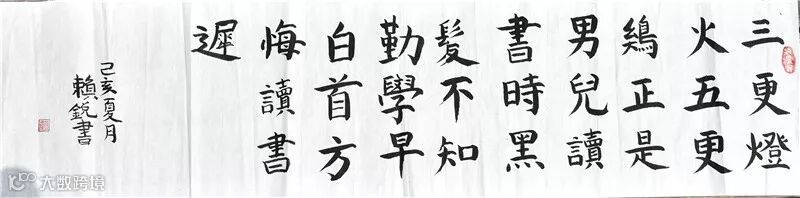 三更燈
火五更
鷄正是
男兒讀
書時黑
髮不知
勤學早
白首方
悔讀書
遲
己亥夏月
賴銳書
大数跨境